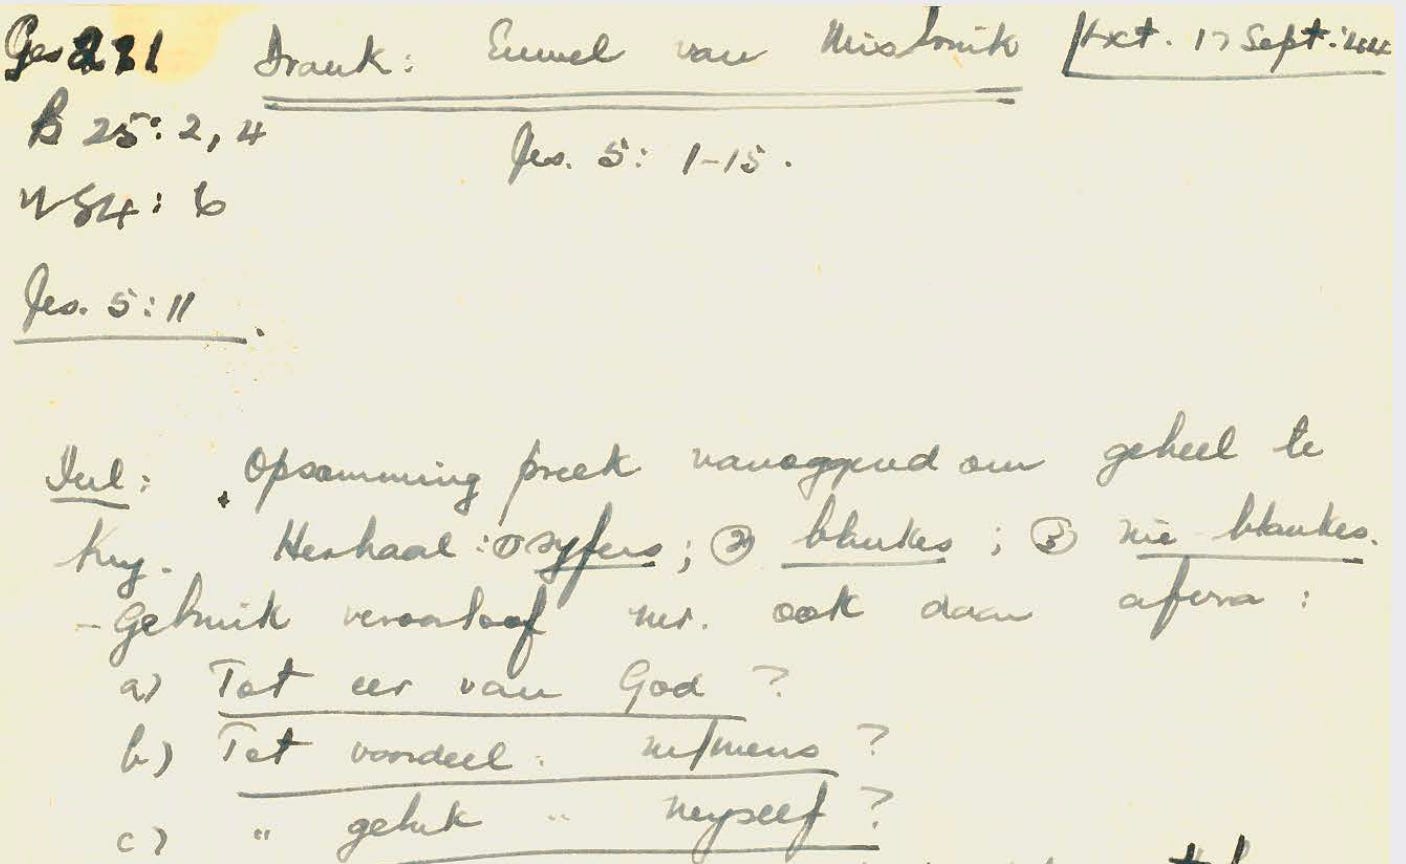 Ges 231 Drank: Euwel van Misbruik Hxt. 17 Sept. '44
B 25: 2, 4
Jes. 5: 1-15.
N 84: 6
Jes. 5: 11.
Inl: Opsomming preek vanoggend om geheel te
kry. Herhaal: ① syfers; ② blankes; ③ nie blankes.
- Gebruik veroorloof mr. ook daar
a) Tot eer van God?
b) Tot voordeel. m/mens?
c) " geluk " myself?